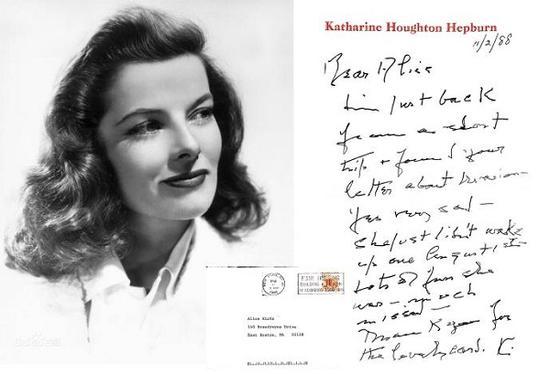 Katharine Houghton Hepburn
11/2/88
Dear Alice
I'm just back
from a short
trip & found your
letter about
Yes very sad —
She just didn't wake
up one August 1st
Lots of fun she
was — much
missed —
Thank you for
the lovely card. K.
Alice
Drive
East Boston, MA 02128